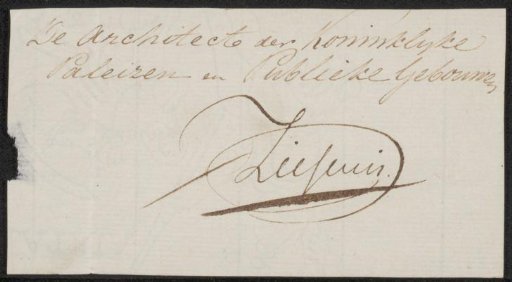 De Architect der Koninklyke
Paleizen en Publieke Gebouwen
Ziesenis